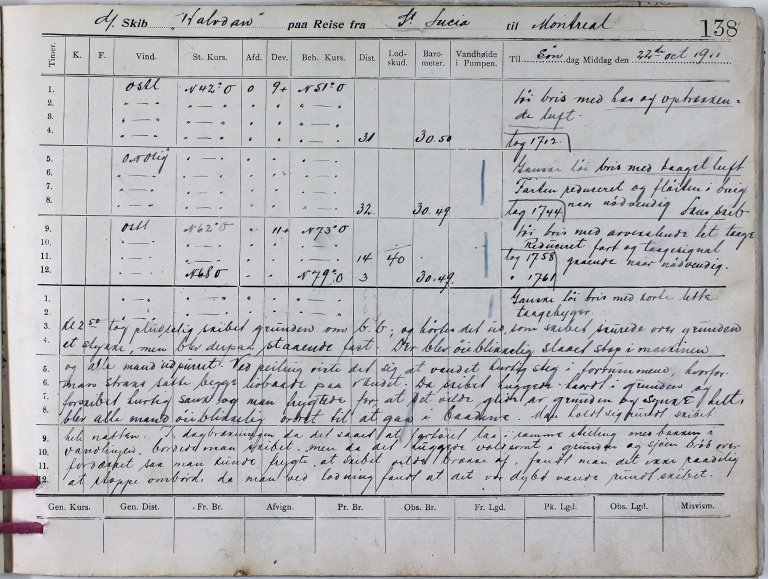 d/s Skib "Kalvdan" paa Reise fra St Lucia til Montreal
138
Timer. K. F. Vind. St. Kurs. Afd. Dev. Beh. Kurs. Dist. Lod-skud. Baro-meter. Vandhøide i Pumpen. Til Søn dag Middag den 22de oct 1911
1. ostl N42°O 0 9+ N51°O
2. " — " " — " " " " — "
3. " — " " — " " " " — "
4. " — " " — " " " " — " 31 30.50
løi bris med has og optrækken-
de luft.
log 1712
5. ONOlig " — " " " " — "
6. " — " " — " " " " — "
7. " — " " — " " " " — "
8. " — " " — " " " " — " 32. 30.49
Ganske løi bris med taaget luft
Farten reduceret og fløiten i brug
naar nødvendig
log 1744
9. ostl N62°O " 11+ N73°O
10. " — " " — " " " " — "
11. " — " " — " " " " — " 14 40
12. N68O " " N79°O 3 30.49.
løi bris med let taage
Reduceret fart og taagesignal
gaaende naar nødvendig.
log 1758
" 1761
1. " — " " — " " " " — "
2. " — " " — " " " " — "
Ganske løi bris med korte lette
taagebyger.
3. Kl 2 50 tog pludselig skibet grunden om b.b; og hørtes det ud som skibet skurede over grunden
4. et stykke, men blev derpaa staaende fast. Der blev øieblikkelig slaaet stop i maskinen
5. og alle mand udpurret. Ved peiling viste det sig at vandet hurtig steg i forrummene, hvorfor
6. man straks satte begge baade paa . Da skibet huggede haardt i grunden og
7. forskibet hurtig sank og man frygtede for, at det vilde glide af grunden og synke helt,
8. blev alle mand øieblikkelig ordret til at gaa i Baadene. Man holdt sig rundt skibet
9. hele natten. I dagbrækningen da det saaes at fartøiet laa i samme stilling med bakken i
10. vandlinjen, bordede man skibet, men da det huggede voldsomt i grunden og sjøen brød over
11. fordækket saa man kunde frygte, at skibet vilde brække af, fandt man det ikke raadelig
12. at stoppe ombord, da man ved lodning fandt at det var dybt vande rundt skibet.
Gen. Kurs. Gen. Dist. Fr. Br. Afvign. Pr. Br. Obs. Br. Fr. Lgd. Pk. Lgd. Obs. Lgd. Misvism.